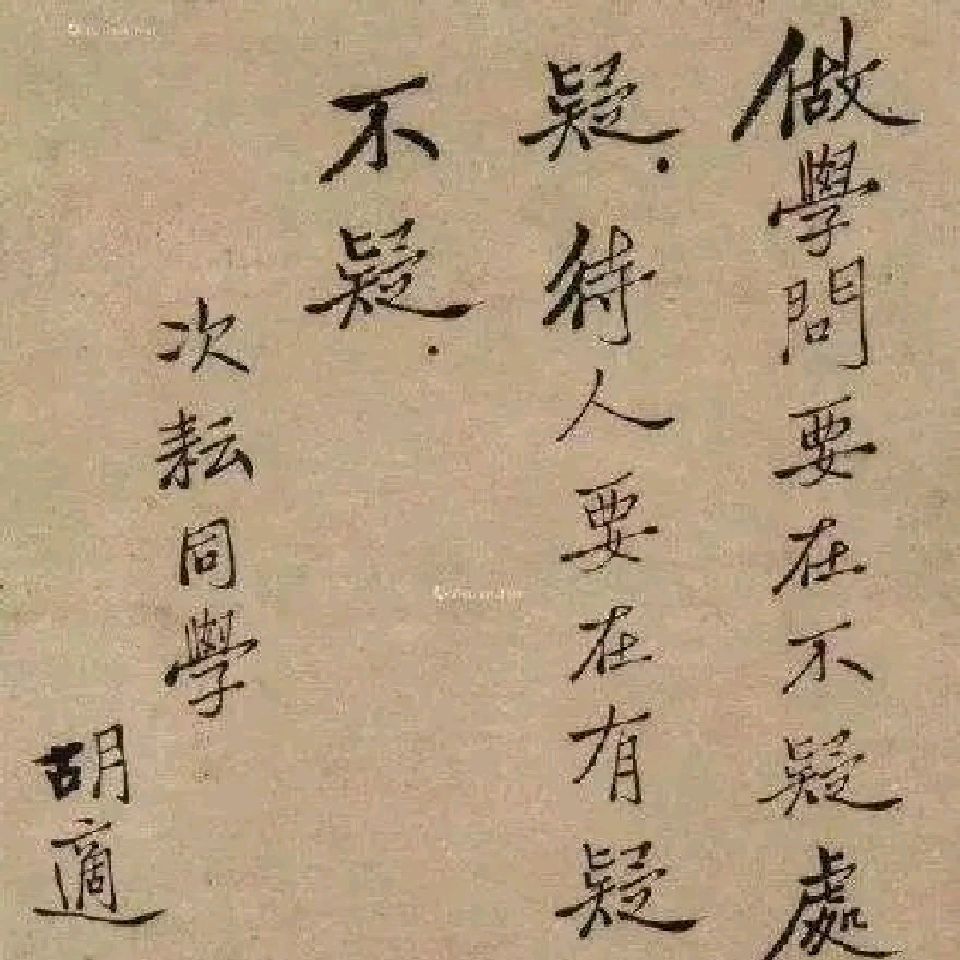 做學問要在不疑處
疑.待人要在有疑
不疑.
次耘同學
胡適